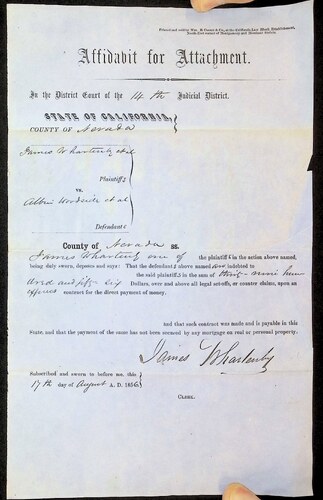 Affidavit for Attachment.
In the District Court of the 14th Judicial District.
STATE OF CALIFORNIA,
COUNTY OF Nevada
James Whartenby et al
Plaintiffs
vs.
et al
Defendants
County of Nevada ss.
James Whartenby one of the plaintiffs in the action above named,
being duly sworn, deposes and says: That the defendants above named are indebted to
the said plaintiffs in the sum of thirty-nine hun
dred and fifty six Dollars, over and above all legal setoffs, or counter claims, upon an
express contract for the direct payment of money.
and that such contract was made and is payable in this
State, and that the payment of the same has not been secured by any mortgage on real or personal property.
James Whartenby
Subscribed and sworn to before me, this
17th day of August A. D. 1856
CLERK.